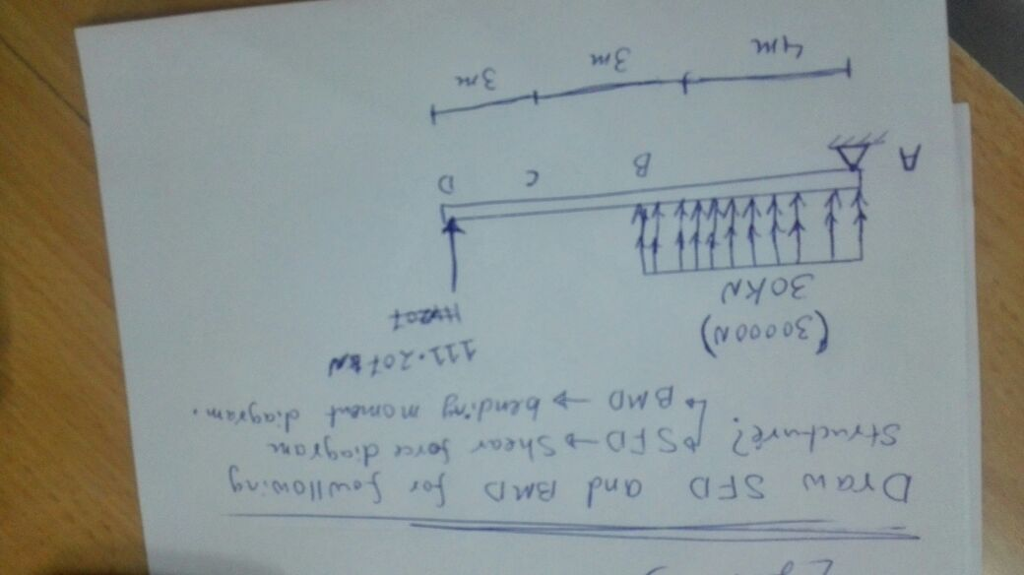 Draw SFD and BMD for fowllowing
Structure? ↳ SFD → Shear force diagram
↳ BMD → bending moment diagram.
(30000N)
30KN
111.207 kN
A
B
C
D
4m
3m
3m